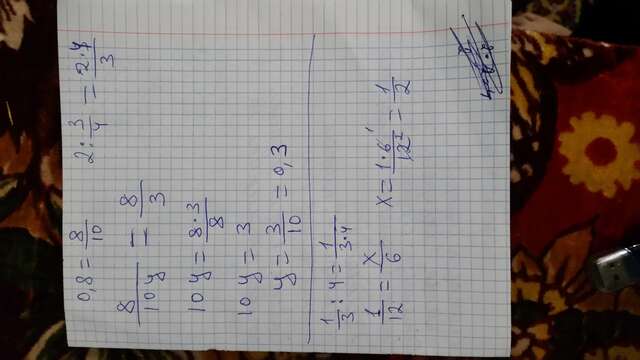 0,8 = 8/10
2 : 3/4 = 2·4/3
8/10y = 8/3
10y = 8·3/8
10y = 3
y = 3/10 = 0,3
1/3 : 4 = 1/3·4
1/12 = x/6
x = 1·6¹/12² = 1/2